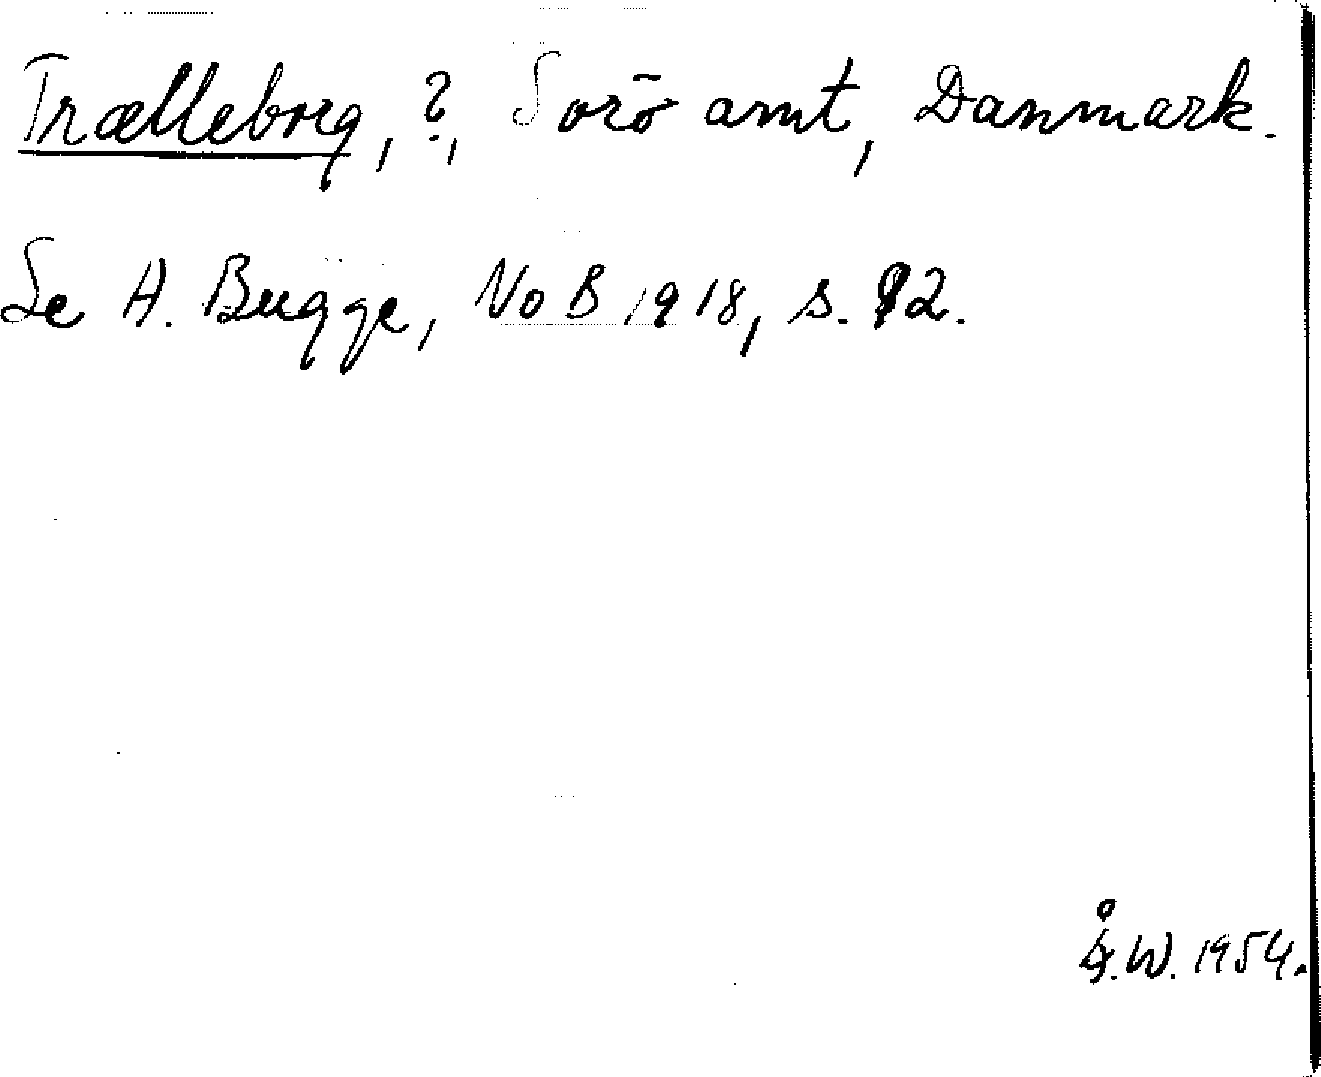 Trælleborg, ?, Sorö amt, Danmark.
Se A. Bugge, NoB 1918, s. 92.
Å.W. 1954.